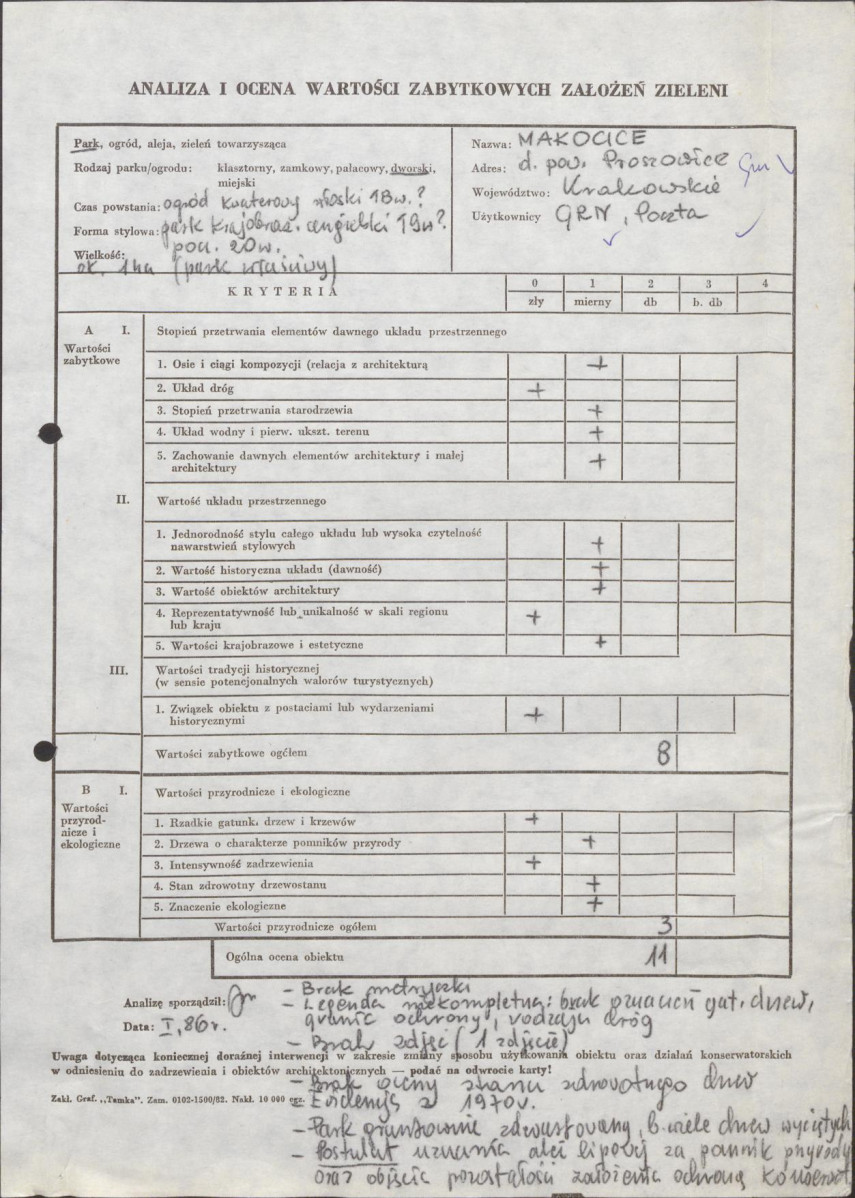 ANALIZA I OCENA WARTOŚCI ZABYTKOWYCH ZAŁOŻEŃ ZIELENI
Park, ogród, aleja, zieleń towarzysząca
Rodzaj parku/ogrodu: klasztorny, zamkowy, pałacowy, dworski,
miejski
Czas powstania: ogród kwaterowy włoski 18w.?
Forma stylowa: park krajobraz. angielski 19w?
pocz. 20w.
Wielkość:
ok. 1ha (park właściwy)
Nazwa: MAKOCICE
Adres: d. pow. Proszowice
Województwo: Krakowskie
Użytkownicy GRN, Poczta
KRYTERIA
0 1 2 3 4
zły mierny db b. db
A I. Stopień przetrwania elementów dawnego układu przestrzennego
Wartości
zabytkowe
1. Osie i ciągi kompozycji (relacja z architekturą +
2. Układ dróg +
3. Stopień przetrwania starodrzewia +
4. Układ wodny i pierw. ukszt. terenu +
5. Zachowanie dawnych elementów architektury i małej
architektury +
II. Wartość układu przestrzennego
1. Jednorodność stylu całego układu lub wysoka czytelność
nawarstwień stylowych +
2. Wartość historyczna układu (dawność) +
3. Wartość obiektów architektury +
4. Reprezentatywność lub unikalność w skali regionu
lub kraju +
5. Wartości krajobrazowe i estetyczne +
III. Wartości tradycji historycznej
(w sensie potencjonalnych walorów turystycznych)
1. Związek obiektu z postaciami lub wydarzeniami
historycznymi +
Wartości zabytkowe ogółem 8
B I. Wartości przyrodnicze i ekologiczne
Wartości
przyrod-
nicze i
ekologiczne
1. Rzadkie gatunki drzew i krzewów +
2. Drzewa o charakterze pomników przyrody +
3. Intensywność zadrzewienia +
4. Stan zdrowotny drzewostanu +
5. Znaczenie ekologiczne +
Wartości przyrodnicze ogółem 3
Ogólna ocena obiektu 11
- Brak metryczki
Analizę sporządził: - Legenda niekompletna: brak oznaczeń gat. drzew,
granic ochrony, rodzaju dróg
Data: I, 86r.
- Brak zdjęć (1 zdjęcie)
Uwaga dotycząca koniecznej doraźnej interwencji w zakresie zmiany sposobu użytkowania obiektu oraz działań konserwatorskich
w odniesieniu do zadrzewienia i obiektów architektonicznych — podać na odwrocie karty!
- Brak oceny stanu zdrowotnego drzew
Zakł. Graf. „Tamka". Zam. 0102-1500/82. Nakł. 10 000 egz.
- Ewidencja z 1970r.
- Park gruntownie zdewastowany, b. wiele drzew wyciętych
- Postulat uznania alei lipowej za pomnik przyrody
oraz objęcia pozostałości założenia ochroną konserwat